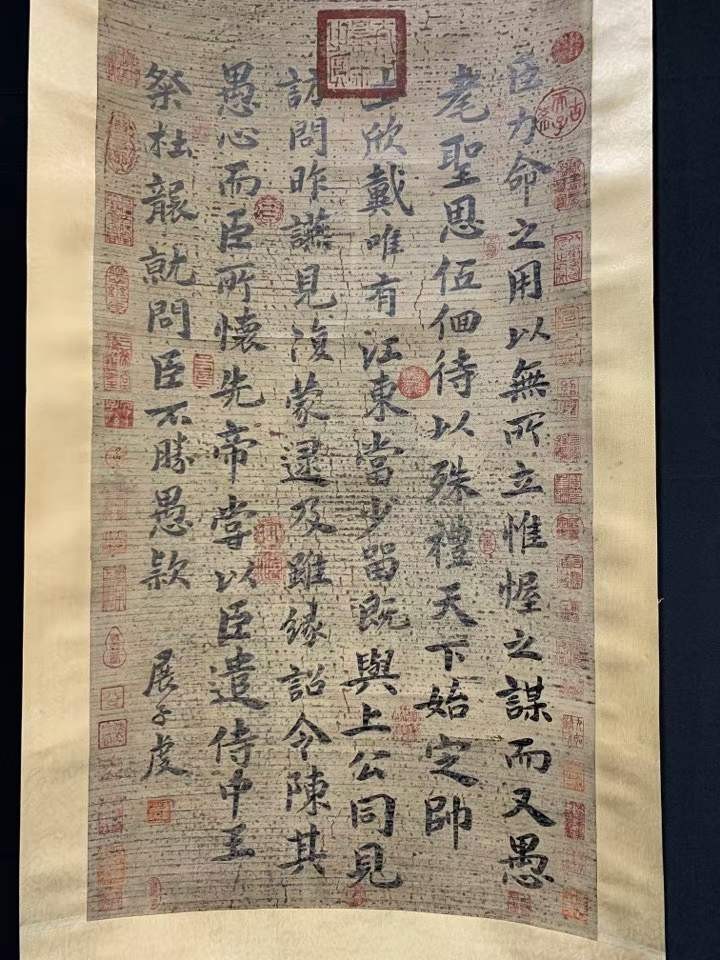 臣力命之用以無所立惟幄之謀而又愚
耄聖恩伍佪待以殊禮天下始定帥
上欣戴唯有江東當少留既與上公同見
訪問昨讌見復蒙逮及雖緣詔令陳其
愚心而臣所懷先帝掌以臣遣侍中王
粲杜襲就問臣不勝愚款
展子虔